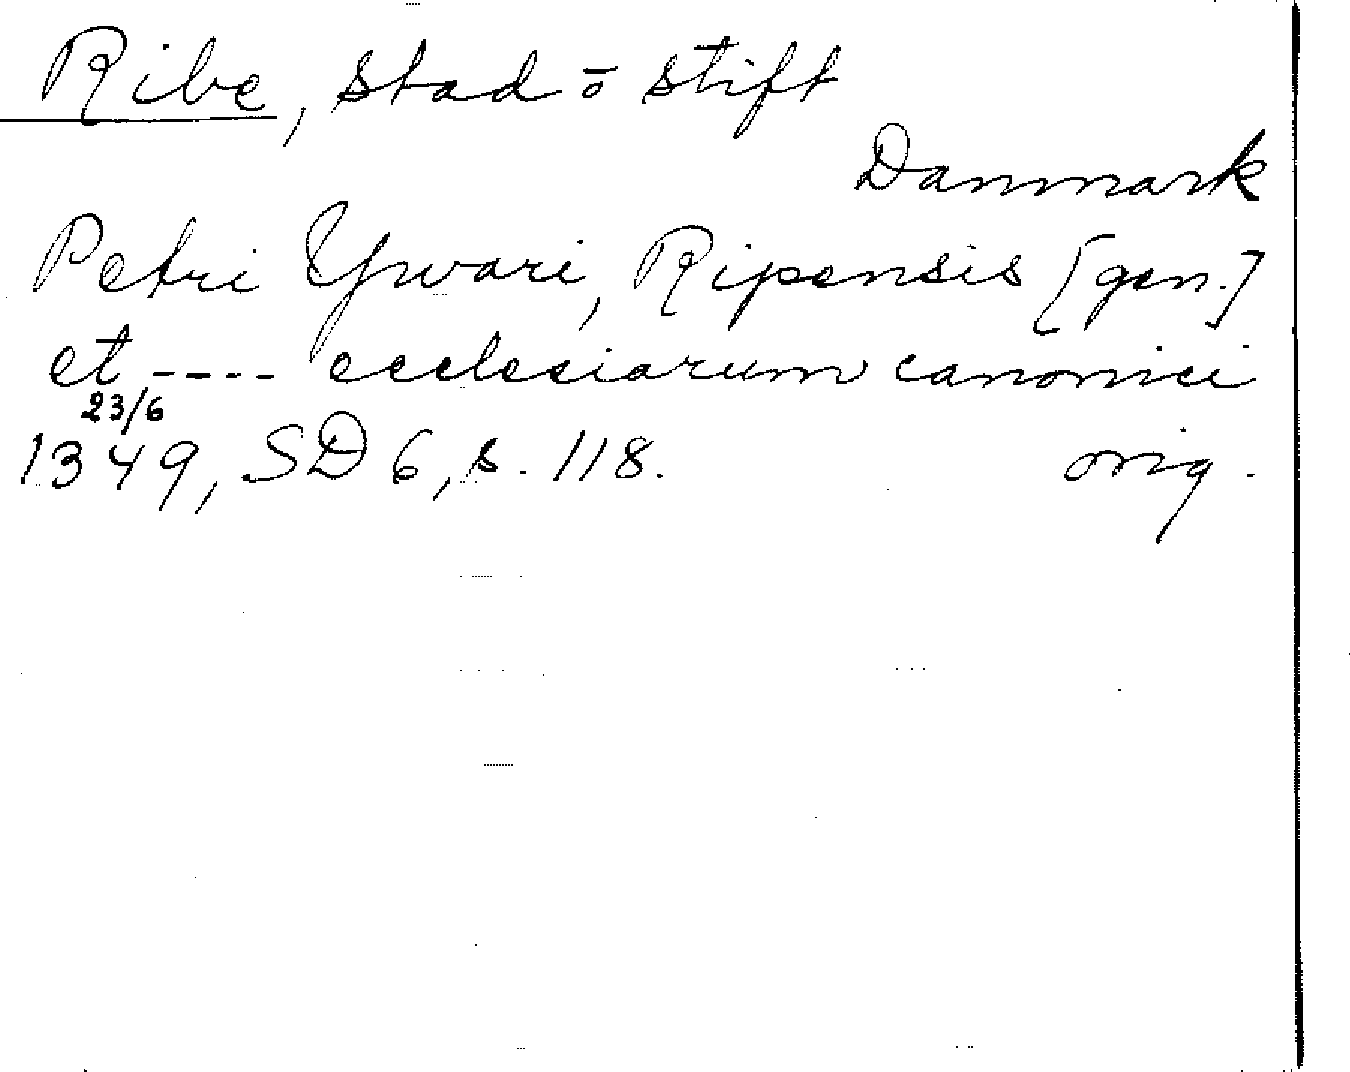 Ribe, stad ō stift
Danmark
Petri Ywari, Ripensis [gen.]
et ---- ecclesiarum canonici
23/6
1349, SD 6, s. 118. orig.